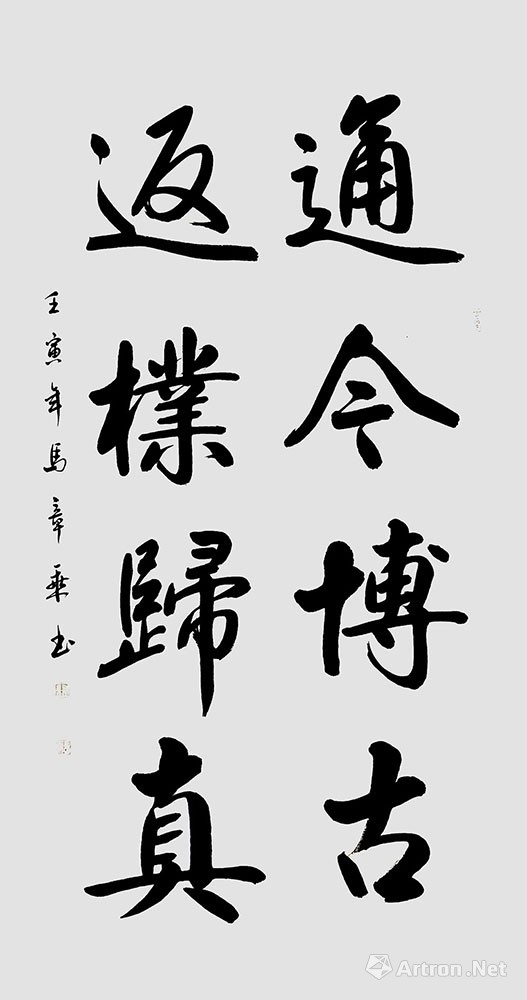 通今博古
返樸歸真
壬寅年馬章乗书
Artron.Net